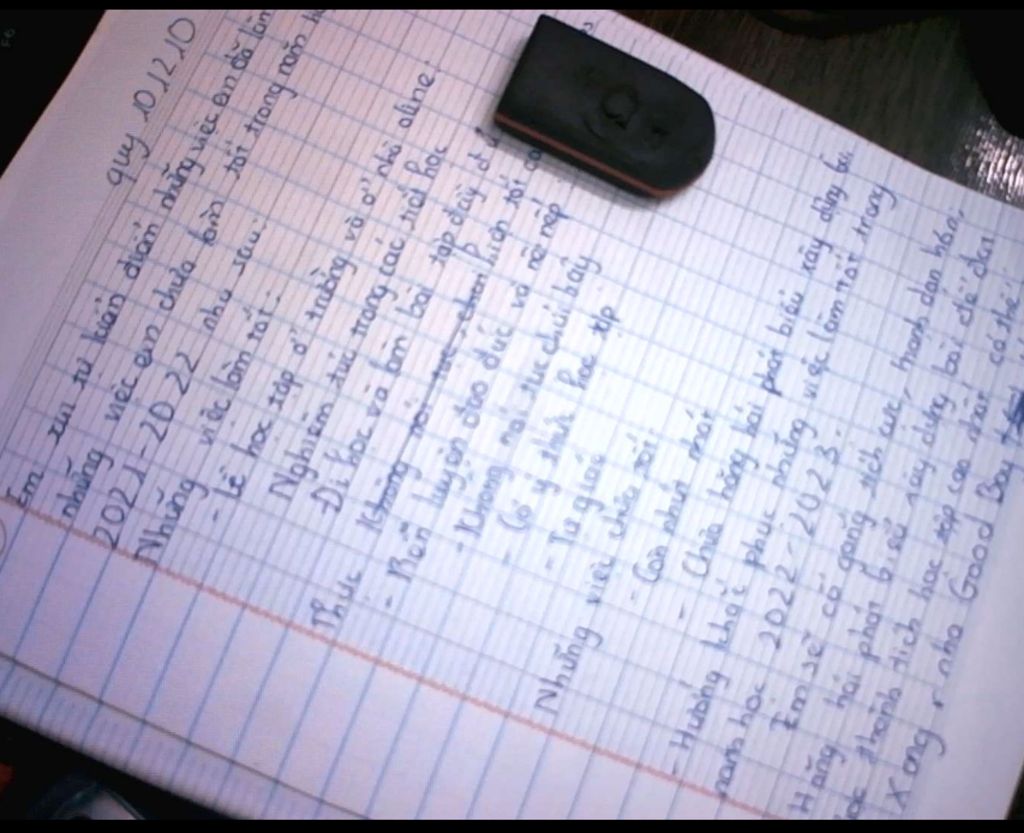 quy 10.12.10
Em xin tự kiểm những việc em đã làm
những việc em chưa làm tốt trong năm
2021-2022 như sau:
Những việc làm tốt:
- Về học tập ở trường và ở nhà oline.
Nghiêm túc trong các tiết học
- Đi học và làm bài tập đầy đủ
Thực
- Rèn luyện đạo đức và nề nếp
- Không nói tục chửi bậy
- Có ý thức học tập
- Tự giác
Những việc chưa tốt
- Còn nhút nhát
- Chưa hăng hái phát biểu xây dựng bài
- Hướng khắc phục những việc làm tốt trong
năm học 2022-2023:
Em sẽ cố gắng tích cực, mạnh dạn hơn,
Hăng hái phát b sẽ xây dựng bài để đạt
thành tích học tập cao nhất có thể!
Xong r nha Good Boy